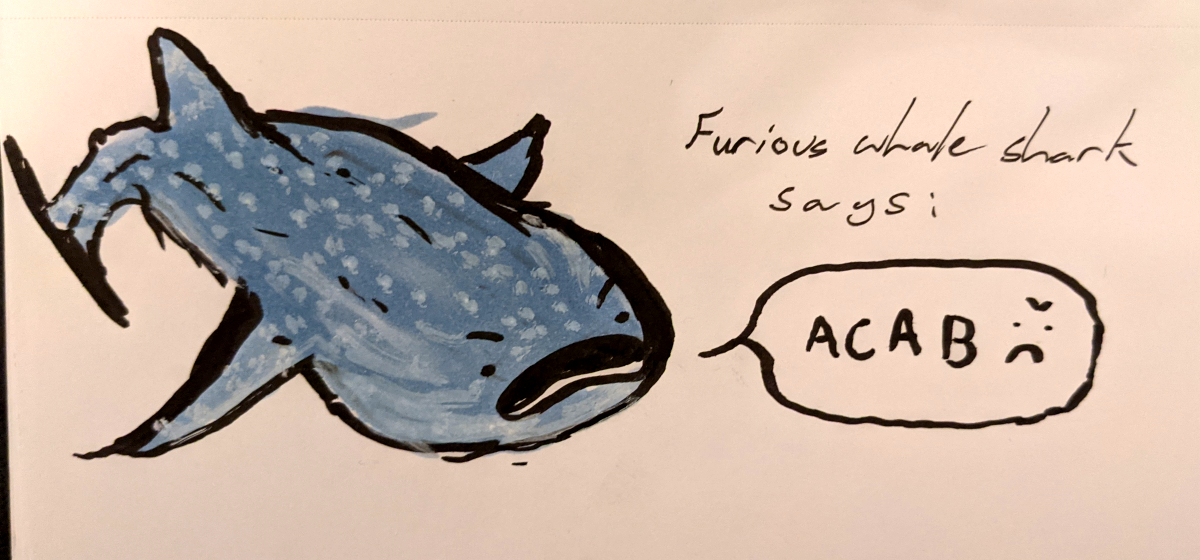 Furious whale shark
says:
ACAB